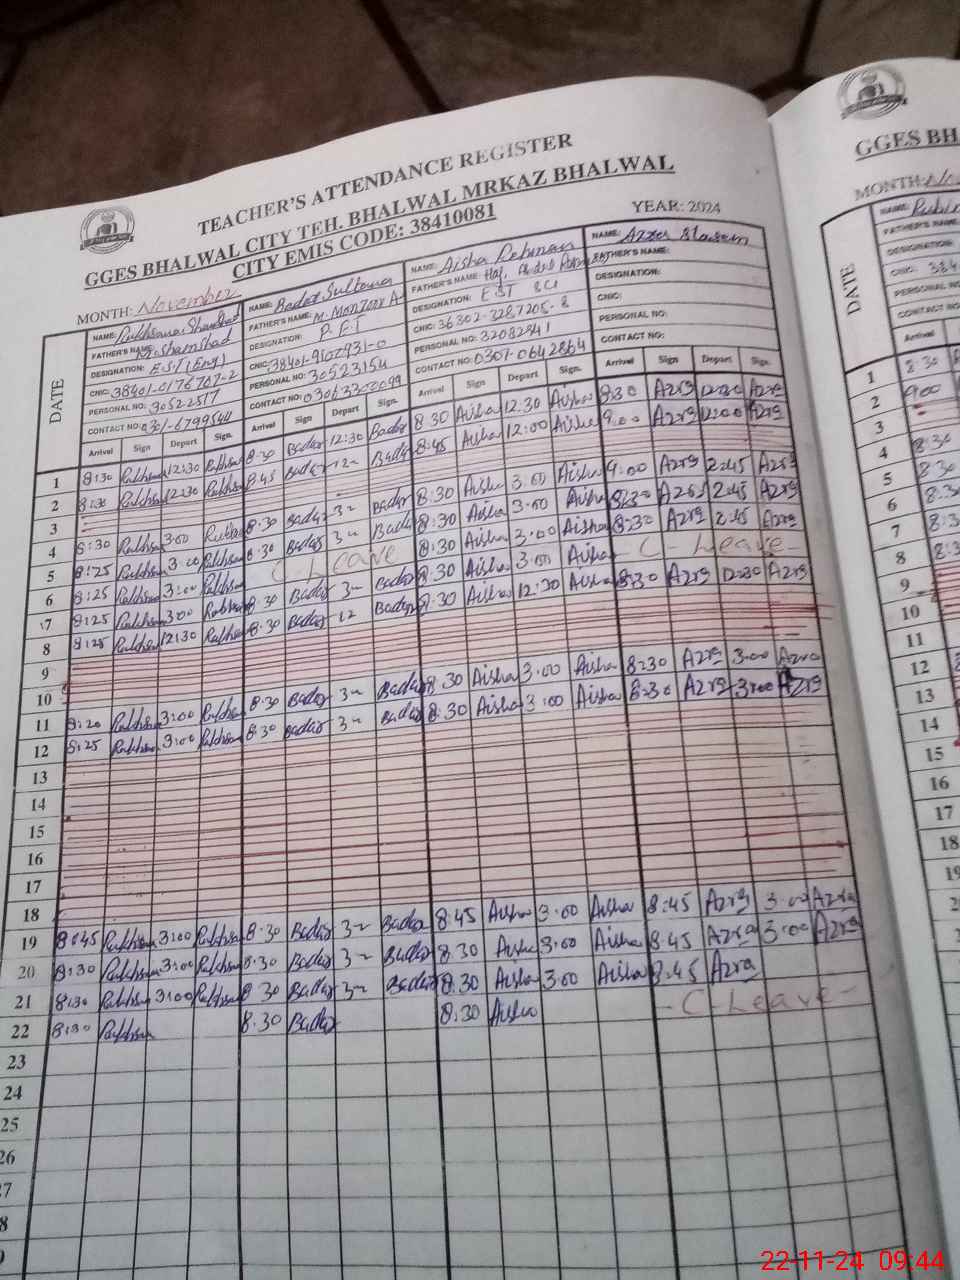 TEACHER'S ATTENDANCE REGISTER
GGES BHALWAL CITY TEH. BHALWAL MRKAZ BHALWAL
CITY EMIS CODE: 38410081
MONTH: November YEAR: 2024
DATE
NAME: Rukhsana Shamshad
FATHER'S NAME: M. Shamshad
DESIGNATION: E.S.T (Eng)
CNIC: 38401-0176707-2
PERSONAL NO: 30522517
CONTACT NO: 0301-6799544
NAME: Badar Sultana
FATHER'S NAME: M. Manzoor A
DESIGNATION: P.E.T
CNIC: 38401-9107931-0
PERSONAL NO: 30523154
CONTACT NO: 03063300099
NAME: Aisha Rehman
FATHER'S NAME: Haj. Abdul
DESIGNATION: EST SCI
CNIC: 36302-3287205-8
PERSONAL NO: 32082841
CONTACT NO: 0307-0642864
NAME:
FATHER'S NAME:
DESIGNATION:
CNIC:
PERSONAL NO:
CONTACT NO:
Arrival Sign Depart Sign. Arrival Sign Depart Sign. Arrival Sign Depart Sign. Arrival Sign Depart Sign.
1 8:30 Rukhsana 12:30 Rukhsana 8:30 Badar 12:30 Badar 8:30 Aisha 12:30 Aisha 8:30 Azra 12:30 Azra
2 8:30 Rukhsana 12:30 Rukhsana 8:45 Badar 12 Badar 8:45 Aisha 12:00 Aisha 9:00 Azra 12:00 Azra
3
4 8:30 Rukhsana 3:00 Rukhsana 8:30 Badar 3 Badar 8:30 Aisha 3:00 Aisha 9:00 Azra 2:45 Azra
5 8:25 Rukhsana 3:00 Rukhsana 8:30 Badar 3 Badar 8:30 Aisha 3:00 Aisha 8:30 Azra 2:45 Azra
6 8:25 Rukhsana 3:00 Rukhsana C-Leave 8:30 Aisha 3:00 Aisha 8:30 Azra 2:45 Azra
7 8:25 Rukhsana 3:00 Rukhsana 8:30 Badar 3 Badar 8:30 Aisha 3:00 Aisha - C-Leave -
8 8:25 Rukhsana 12:30 Rukhsana 8:30 Badar 12 Badar 8:30 Aisha 12:30 Aisha 8:30 Azra 12:30 Azra
9
10
11 8:20 Rukhsana 3:00 Rukhsana 8:30 Badar 3 Badar 8:30 Aisha 3:00 Aisha 8:30 Azra 3:00 Azra
12 8:25 Rukhsana 3:00 Rukhsana 8:30 Badar 3 Badar 8:30 Aisha 3:00 Aisha 8:30 Azra 3:00 Azra
13
14
15
16
17
18
19 8:45 Rukhsana 3:00 Rukhsana 8:30 Badar 3 Badar 8:45 Aisha 3:00 Aisha 8:45 Azra 3:00 Azra
20 8:30 Rukhsana 3:00 Rukhsana 8:30 Badar 3 Badar 8:30 Aisha 3:00 Aisha 8:45 Azra 3:00 Azra
21 8:30 Rukhsana 3:00 Rukhsana 8:30 Badar 3 Badar 8:30 Aisha 3:00 Aisha 8:45 Azra
22 8:30 Rukhsana 8:30 Badar 8:30 Aisha - C-Leave -
23
24
25
26
27
GGES BH
MONTH:
NAME:
FATHER'S NAME:
DESIGNATION:
CNIC: 384
PERSONAL NO:
CONTACT NO:
DATE
Arrival
1 8:30
2 9:00
3
4 8:30
5 8:30
6 8:30
7 8:3
8 8:3
9
10
11
12
13
14
15
16
17
18
19
22-11-24 09:44